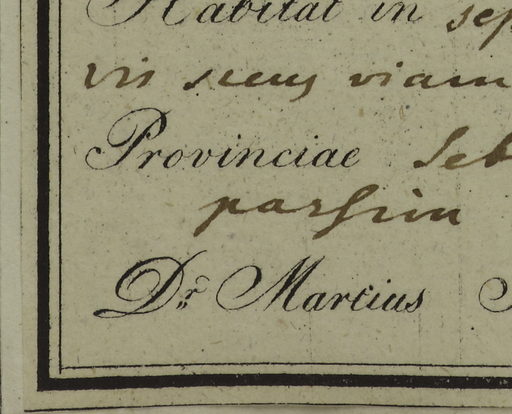 Habitat in sep
vis secus viam
Provinciae Seb
passim
Dr. Martius